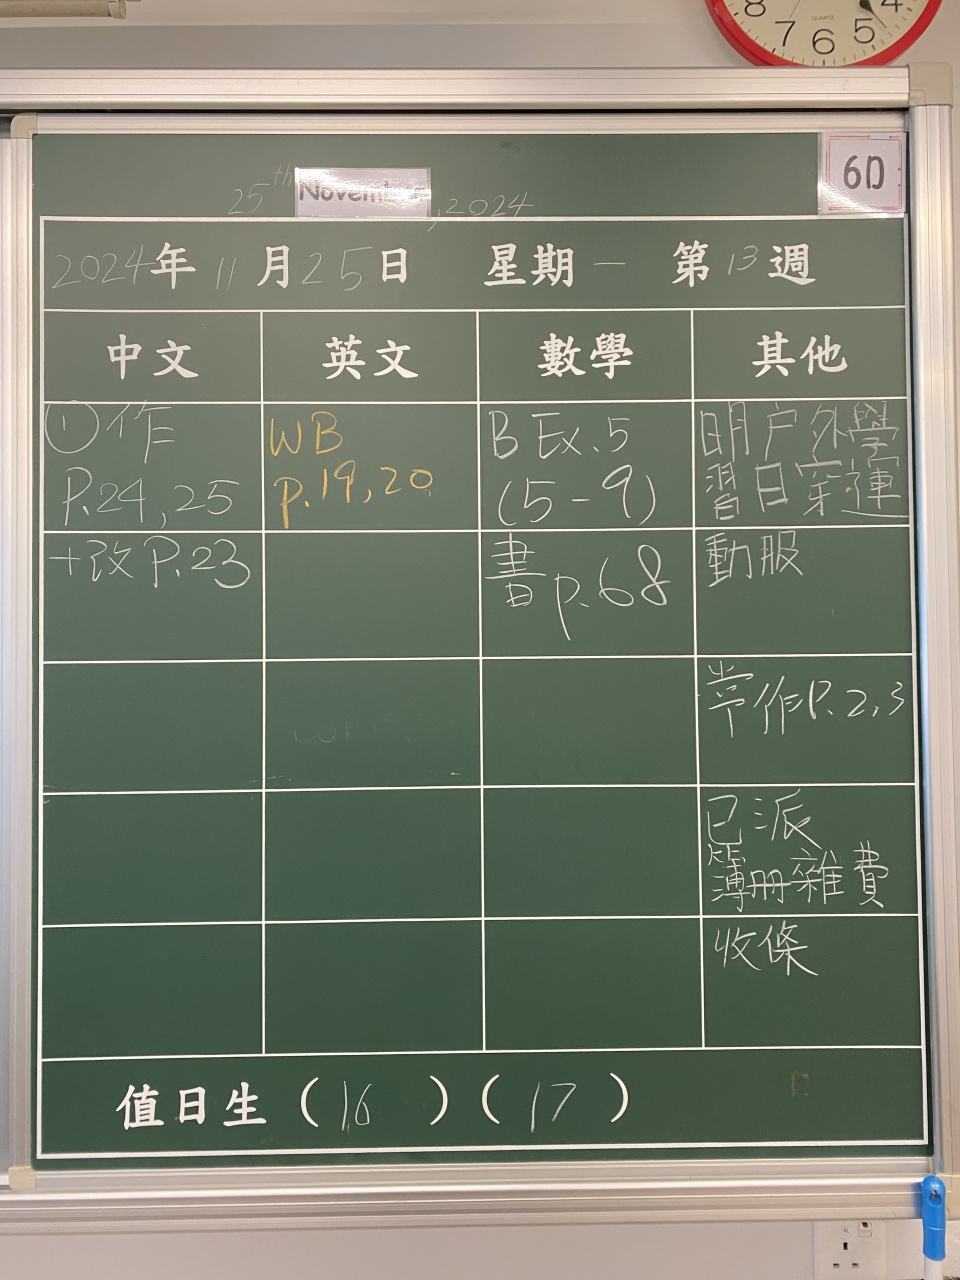 8 7 6 5 4
QUARTZ
6D
25th November, 2024
2024年 11月25日 星期一 第13週
中文 英文 數學 其他
①作
P.24, 25
+改 P.23
WB
p.19, 20
B Ex.5
(5-9)
書 p.68
明户外學
習日穿運
動服
常作P.2,3
已派
簿冊雜費
收條
值日生 (16) (17)